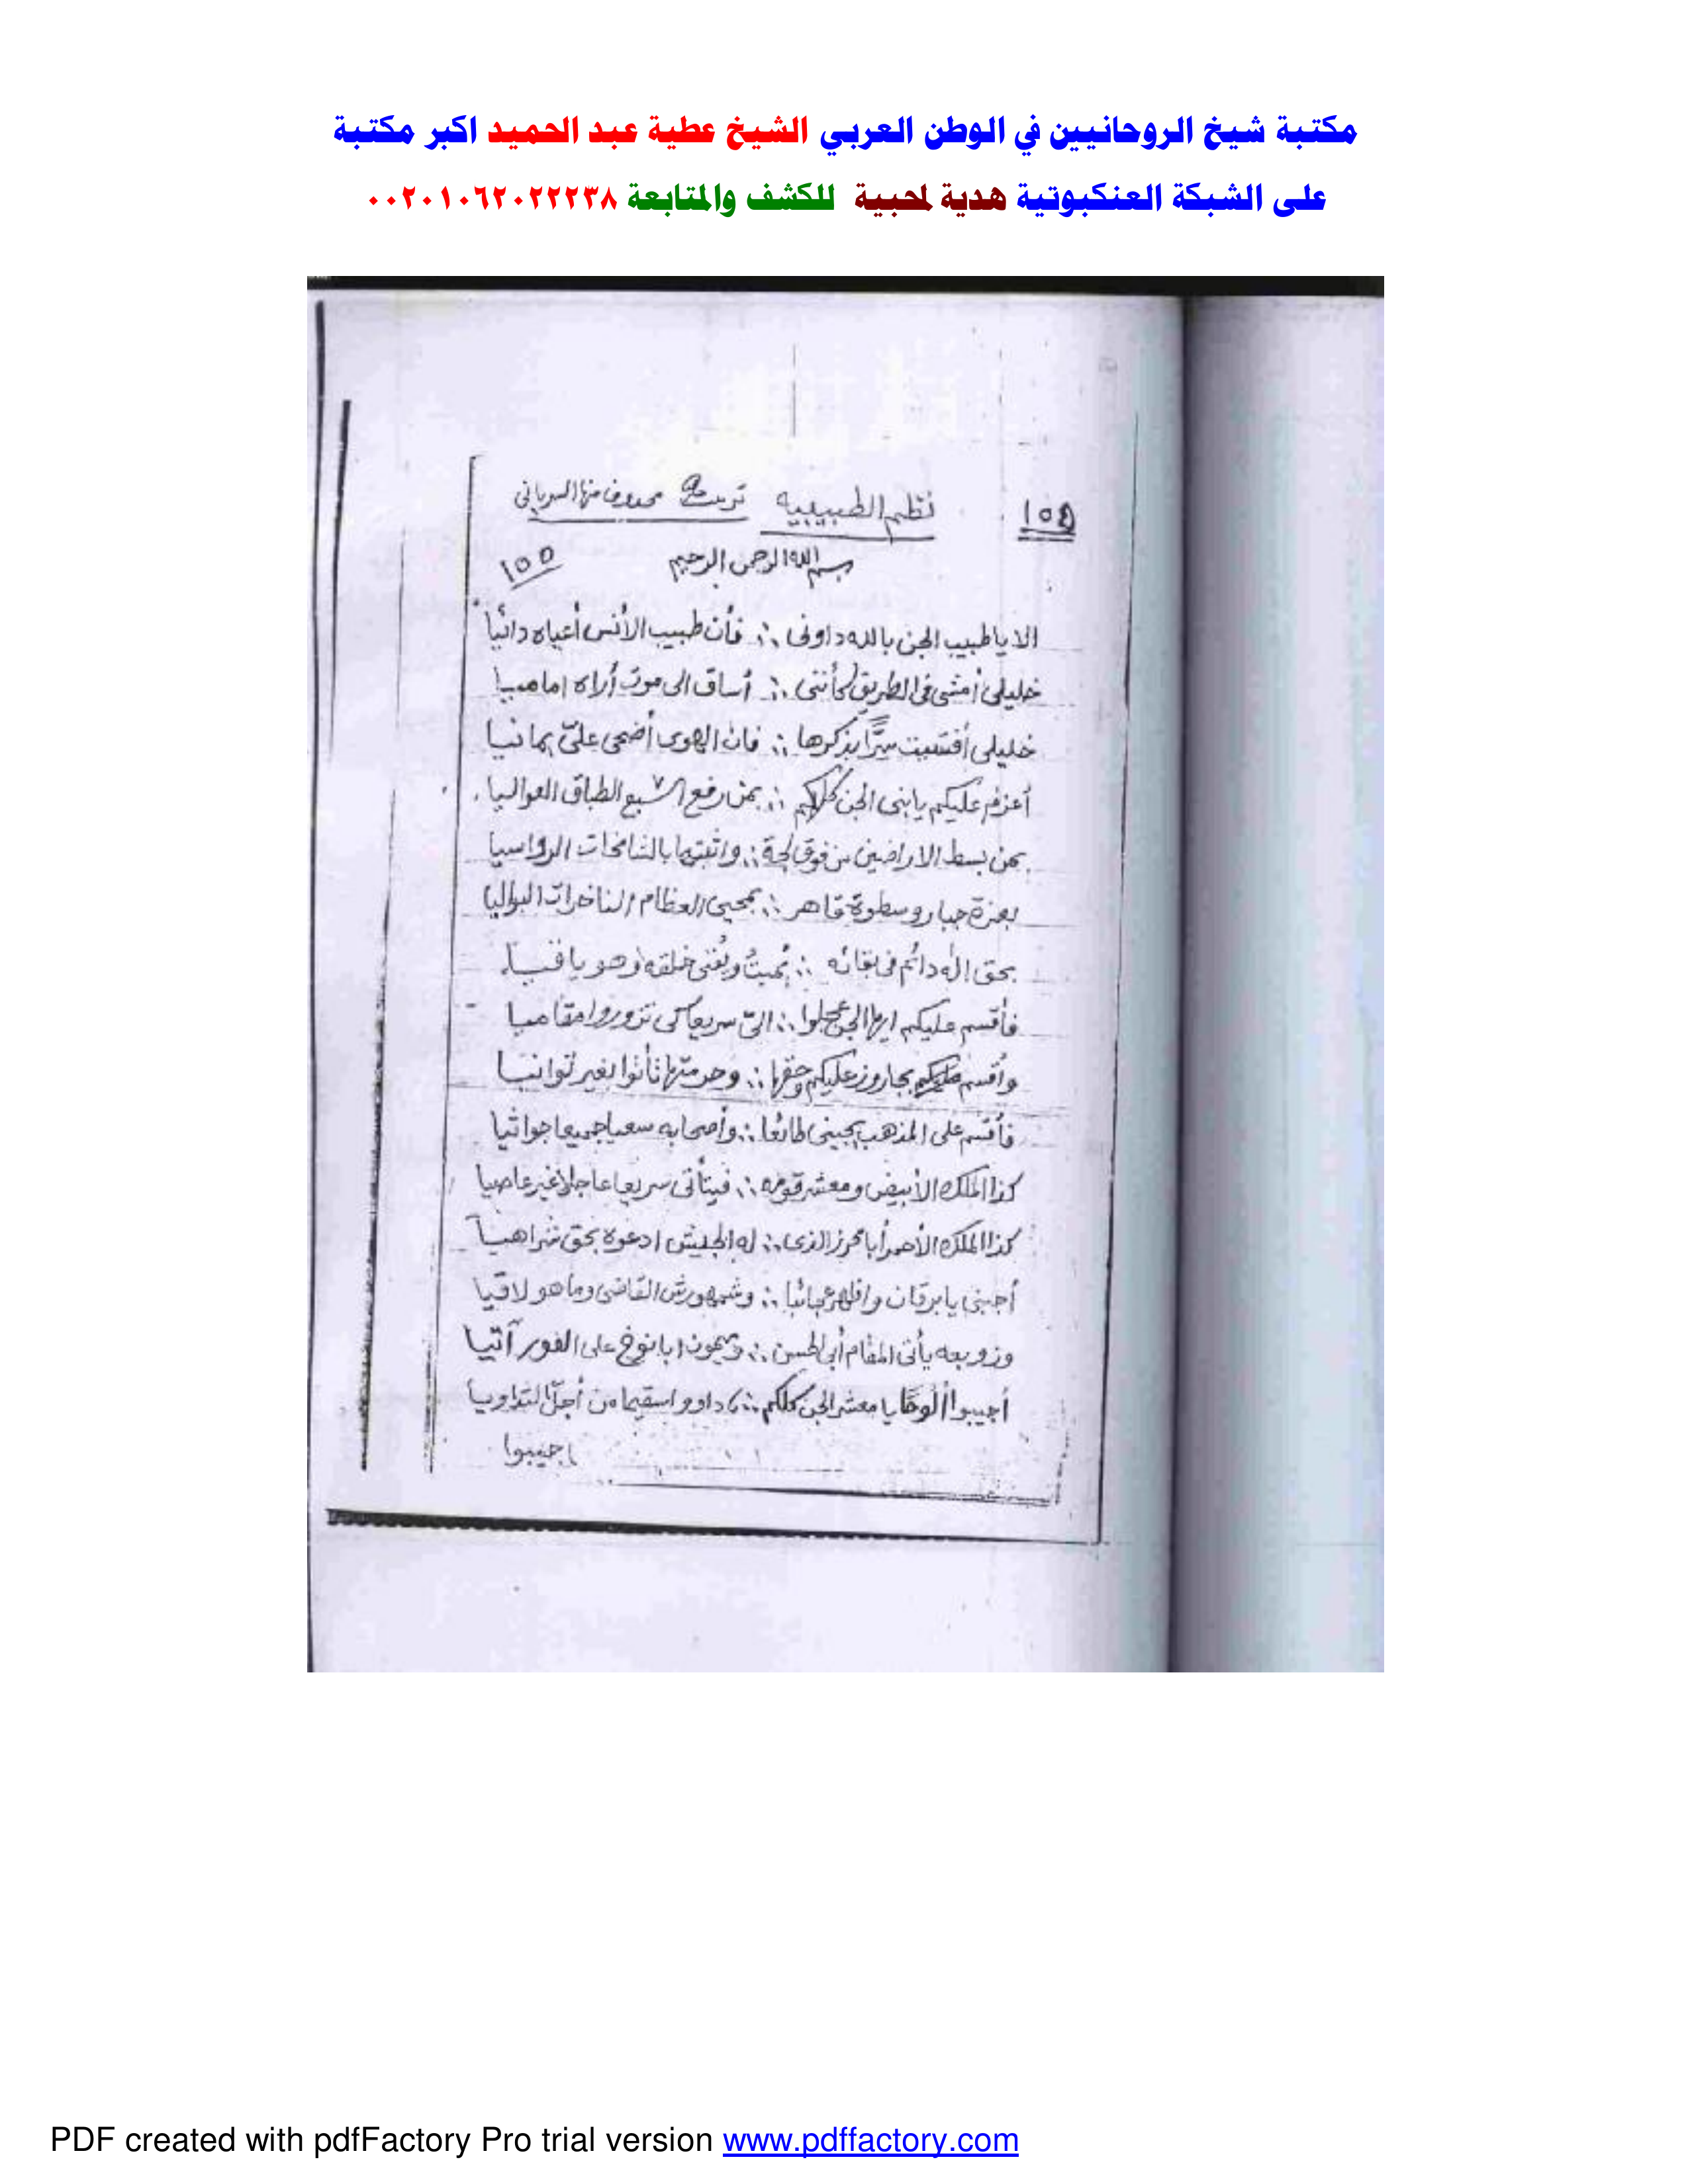 مكتبة شيخ الروحانيين في الوطن العربي الشيخ عطية عبد الحميد اكبر مكتبة
على الشبكة العنكبوتية هدية لمحبية للكشف والمتابعة ٠٠٢٠١٠٦٢٠٢٢٢٣٨
نظم الطبيبيه محذوف منها السريانى
بسم الله الرحمن الرحيم
١٥٥
الا يا طبيب الجن بالله داونى ∴ فأن طبيب الأنس أعياه دائيا
خليلى أمشى فى الطريق كأننى ∴ أساق الى موت أراه اماميا
خليلى أفشيت سرًّا بذكرها ∴ فان الهوى أضحى علىّ بمانيا
أعزم عليكم يا بنى الجن كلكم ∴ بمن رفع السبع الطباق العواليا
بمن بسط الاراضين من فوق لجة ∴ واثبتها بالشامخات الرواسيا
بعزة جبار وسطوة قاهر ∴ بمحيى العظام الناخرات البواليا
بحق اله دائم فى بقائه ∴ يُميتُ ويُفنى خلقه وهو باقيا
فأقسم عليكم ايها الجن عجلوا ∴ الىّ سريعا كى تزوروا مقاميا
وأقسم عليكم وحقها ∴ وحرمتها تأتوا بغير توانيا
فأقسم على المذهب يجينى طائعا ∴ وأصحابه سعيا جميعا جواثيا
كذا الملك الأبيض ومعشر قومه ∴ فيتأتى سريعا عاجلا غير عاصيا
كذا الملك الأحمر أبا محرز الذى ∴ له الجيش ادعوه بحق شراهيا
أجبنى يا برقان واظهر عجائبا ∴ وشمهورش القاضى وما هو لاقيا
وزوبعه يأتى المقام أبى الحسن ∴ وميمون ابا نوخ على الفور آتيا
أجيبوا ألوحًا يا معشر الجن كلكم ∴ داووا سقيما من أجل التداويا
اجيبوا
PDF created with pdfFactory Pro trial version www.pdffactory.com